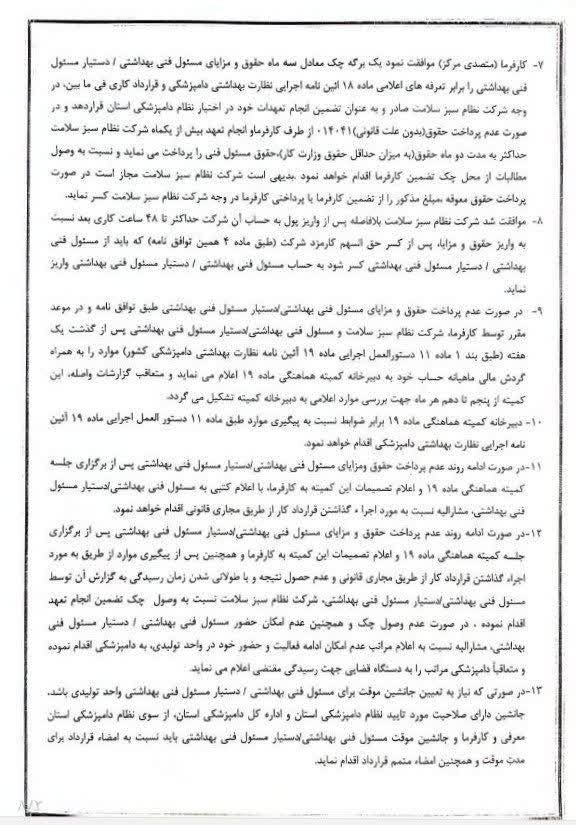 ۷- کارفرما (متصدی مرکز) موافقت نمود یک برگه چک معادل سه ماه حقوق و مزایای مسئول فنی بهداشتی / دستیار مسئول
فنی بهداشتی را برابر تعرفه های اعلامی ماده ۱۸ ائین نامه اجرایی نظارت بهداشتی دامپزشکی و قرارداد کاری فی ما بین، در
وجه شرکت نظام سبز سلامت صادر و به عنوان تضمین انجام تعهدات خود در اختیار نظام دامپزشکی استان قراردهد و در
صورت عدم پرداخت حقوق(بدون علت قانونی)۰۱۴۰۴۱ از طرف کارفرماو انجام تعهد بیش از یکماه شرکت نظام سبز سلامت
حداکثر به مدت دو ماه حقوق(به میزان حداقل حقوق وزارت کار)،حقوق مسئول فنی را پرداخت می نماید و نسبت به وصول
مطالبات از محل چک تضمین کارفرما اقدام خواهد نمود .بدیهی است شرکت نظام سبز سلامت مجاز است در صورت
پرداخت حقوق معوقه ،مبلغ مذکور را از تضمین کارفرما یا پرداختی کارفرما در وجه شرکت نظام سبز سلامت کسر نماید.
۸- موافقت شد شرکت نظام سبز سلامت بلافاصله پس از واریز پول به حساب آن شرکت حداکثر تا ۴۸ ساعت کاری بعد نسبت
به واریز حقوق و مزایا، پس از کسر حق السهم کارمزد شرکت (طبق ماده ۴ همین توافق نامه) که باید از مسئول فنی
بهداشتی / دستیار مسئول فنی بهداشتی کسر شود به حساب مسئول فنی بهداشتی / دستیار مسئول فنی بهداشتی واریز
نماید.
۹- در صورت عدم پرداخت حقوق و مزایای مسئول فنی بهداشتی/دستیار مسئول فنی بهداشتی طبق توافق نامه و در موعد
مقرر توسط کارفرما، شرکت نظام سبز سلامت و مسئول فنی بهداشتی/دستیار مسئول فنی بهداشتی پس از گذشت یک
هفته (طبق بند ۱ ماده ۱۱ دستورالعمل اجرایی ماده ۱۹ آئین نامه نظارت بهداشتی دامپزشکی کشور) موارد را به همراه
گردش مالی ماهیانه حساب خود به دبیرخانه کمیته هماهنگی ماده ۱۹ اعلام می نماید و متعاقب گزارشات واصله، این
کمیته از پنجم تا دهم هر ماه جهت بررسی موارد اعلامی به دبیرخانه کمیته تشکیل می گردد.
۱۰- دبیرخانه کمیته هماهنگی ماده ۱۹ برابر ضوابط نسبت به پیگیری موارد طبق ماده ۱۱ دستور العمل اجرایی ماده ۱۹ آئین
نامه اجرایی نظارت بهداشتی دامپزشکی اقدام خواهد نمود.
۱۱-در صورت ادامه روند عدم پرداخت حقوق ومزایای مسئول فنی بهداشتی/دستیار مسئول فنی بهداشتی پس از برگزاری جلسه
کمیته هماهنگی ماده ۱۹ و اعلام تصمیمات این کمیته به کارفرما، با اعلام کتبی به مسئول فنی بهداشتی/دستیار مسئول
فنی بهداشتی، مشارالیه نسبت به مورد اجراء گذاشتن قرارداد کار از طریق مجاری قانونی اقدام خواهد نمود.
۱۲-در صورت ادامه روند عدم پرداخت حقوق و مزایای مسئول فنی بهداشتی/دستیار مسئول فنی بهداشتی پس از برگزاری
جلسه کمیته هماهنگی ماده ۱۹ و اعلام تصمیمات این کمیته به کارفرما و همچنین پس از پیگیری موارد از طریق به مورد
اجراء گذاشتن قرارداد کار از طریق مجاری قانونی و عدم حصول نتیجه و با طولانی شدن زمان رسیدگی به گزارش آن توسط
مسئول فنی بهداشتی/دستیار مسئول فنی بهداشتی، شرکت نظام سبز سلامت نسبت به وصول چک تضمین انجام تعهد
اقدام نموده ، در صورت عدم وصول چک و همچنین عدم امکان حضور مسئول فنی بهداشتی / دستیار مسئول فنی
بهداشتی، مشارالیه نسبت به اعلام مراتب عدم امکان ادامه فعالیت و حضور خود در واحد تولیدی، به دامپزشکی اقدام نموده
و متعاقباً دامپزشکی مراتب را به دستگاه قضایی جهت رسیدگی مقتضی اعلام می نماید.
۱۳-در صورتی که نیاز به تعیین جانشین موقت برای مسئول فنی بهداشتی / دستیار مسئول فنی بهداشتی واحد تولیدی باشد،
جانشین دارای صلاحیت مورد تایید نظام دامپزشکی استان و اداره کل دامپزشکی استان، از سوی نظام دامپزشکی استان
معرفی و کارفرما و جانشین موقت مسئول فنی بهداشتی/دستیار مسئول فنی بهداشتی باید نسبت به امضاء قرارداد برای
مدت موقت و همچنین امضاء متمم قرارداد اقدام نماید.